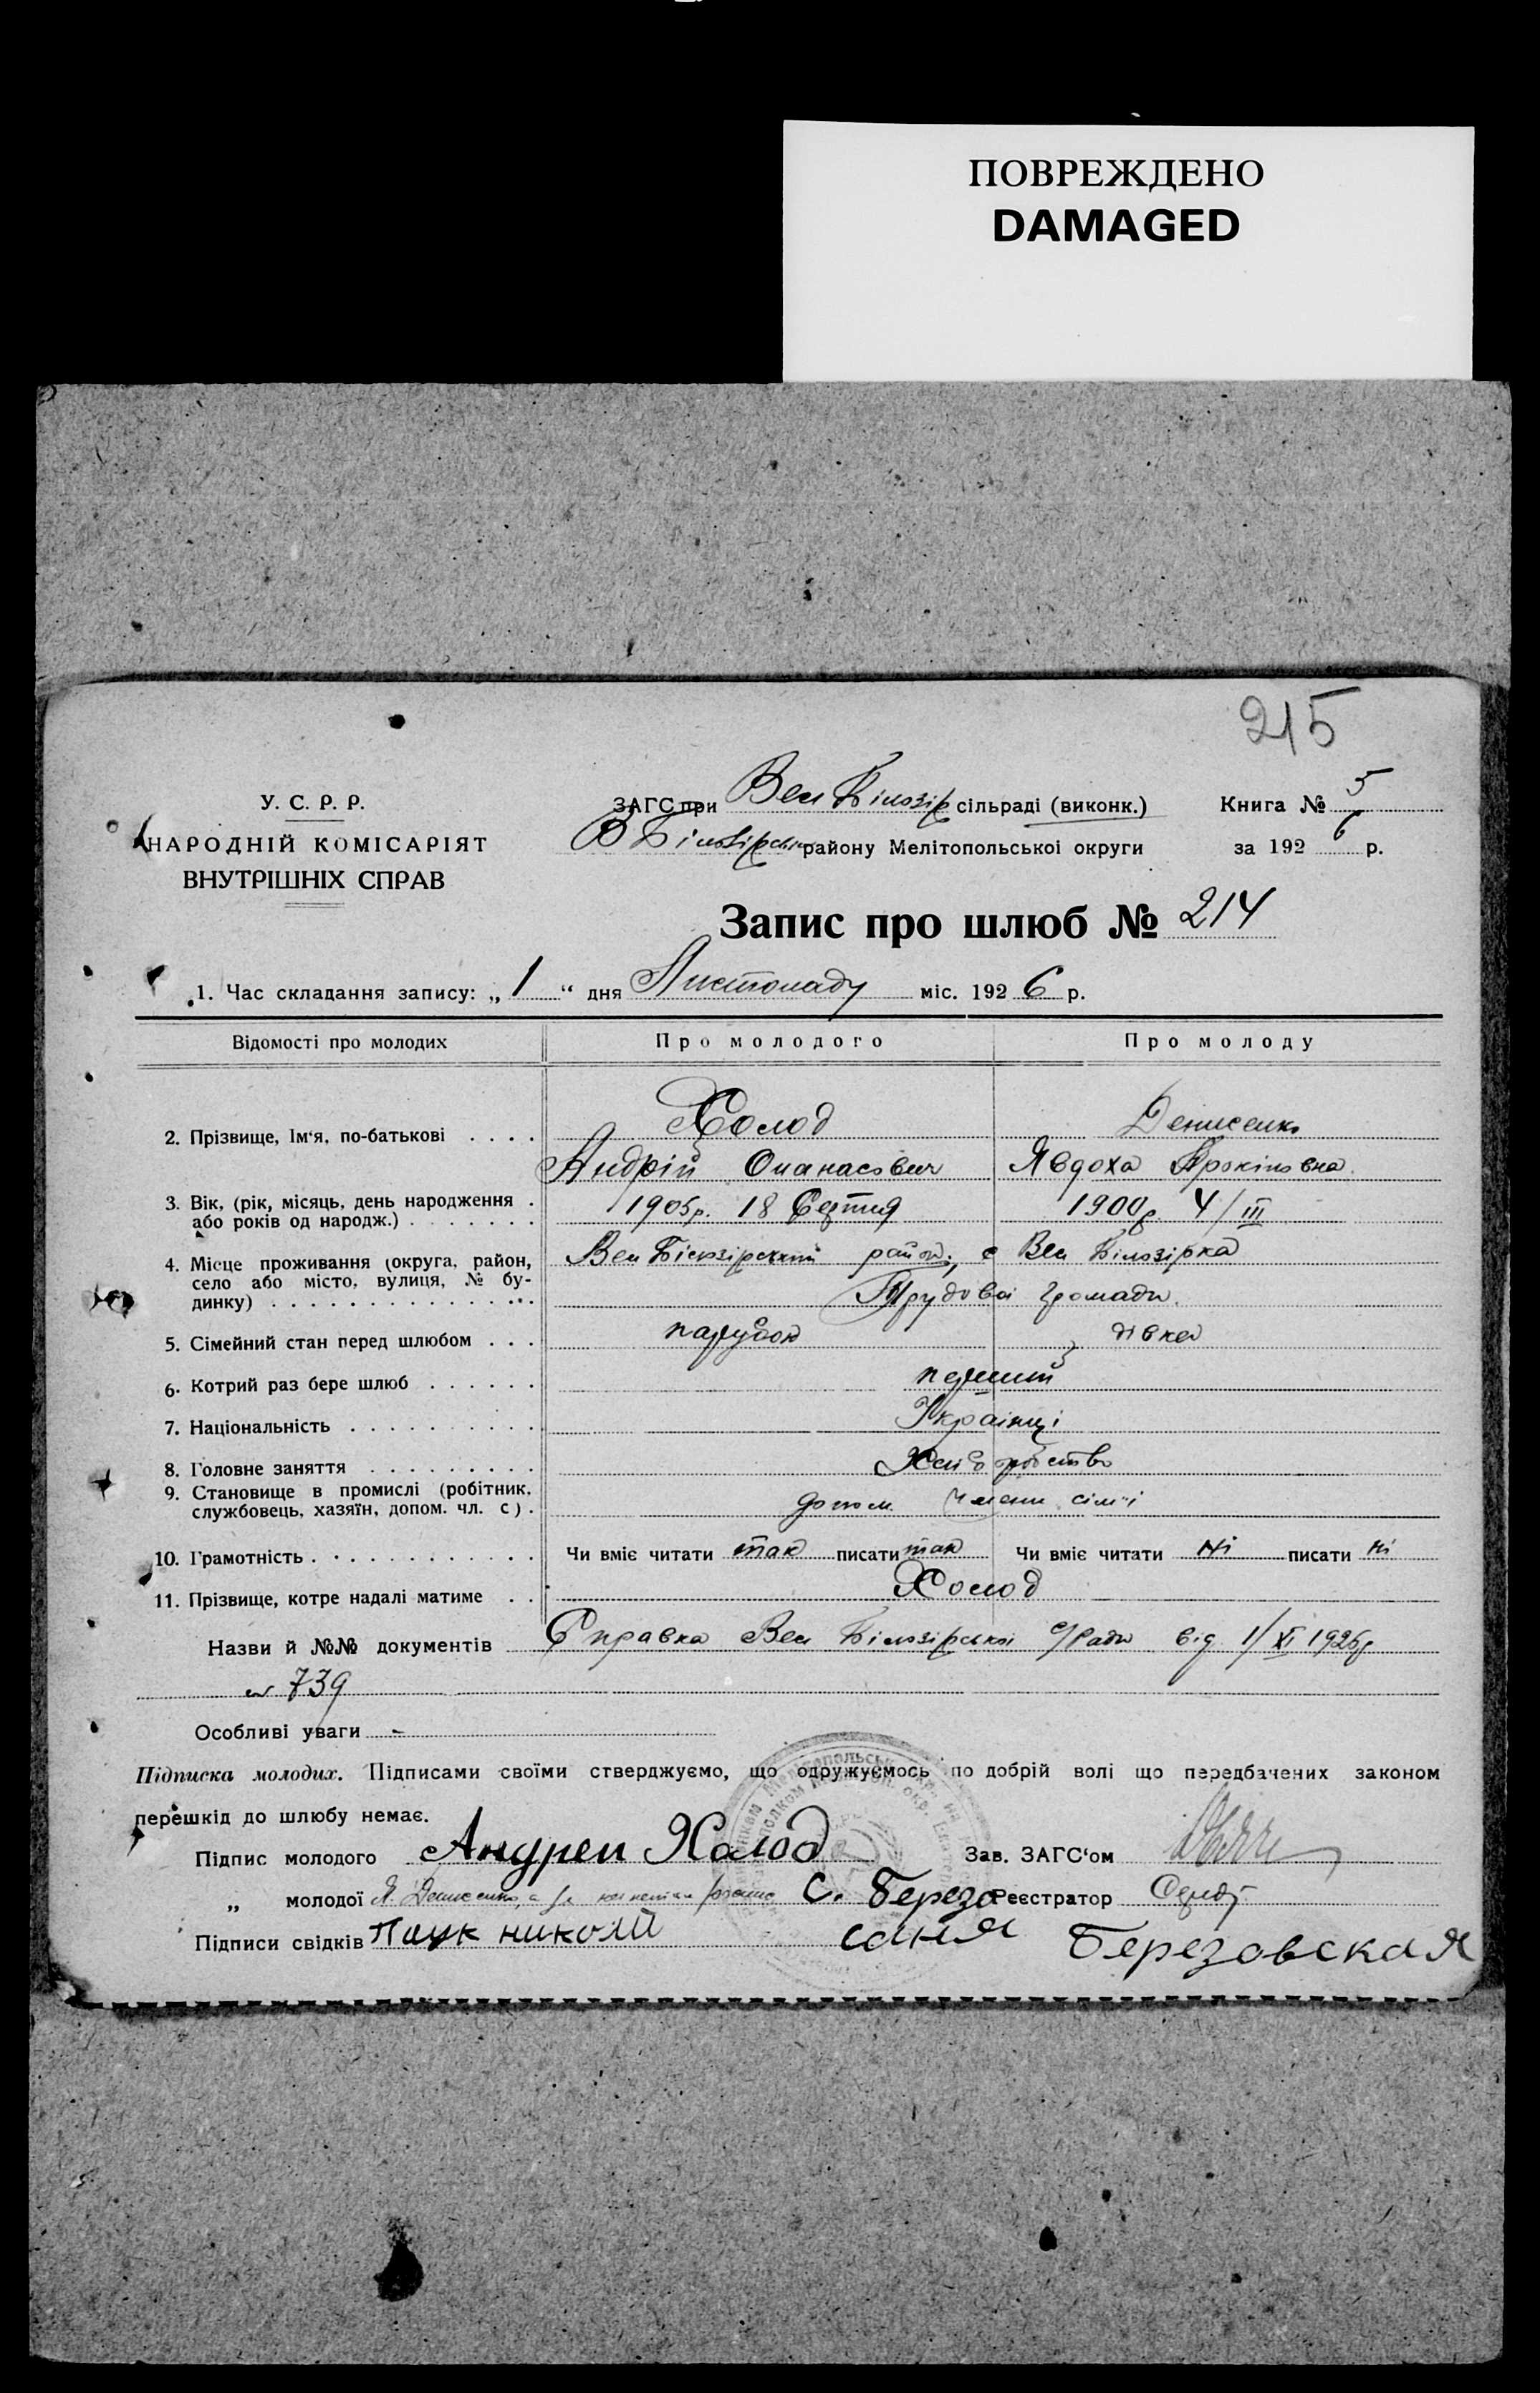 ПОВРЕЖДЕНО
DAMAGED
215
У. С. Р. Р.
НАРОДНІЙ КОМІСАРІЯТ
ВНУТРІШНІХ СПРАВ
ЗАГС при Вел Білозір сільраді (виконк.)
В Білозірськ району Мелітопольської округи
Книга № 5
за 1926 р.
Запис про шлюб № 214
1. Час складання запису: „ 1 “ дня Листопаду міс. 192 6 р.
Відомості про молодих Про молодого Про молоду
Холод Денисенко
2. Прізвище, Ім‘я, по-батькові . . . .
Андрій Опанасович Явдоха Прокіповна
3. Вік, (рік, місяць, день народження . 1905р. 18 Серпня 1900р. 4/III
або років од народж.) . . . . . . .
4. Місце проживання (округа, район, Вел Білозірський район, с Вел Білозірка
село або місто, вулиця, № бу-
динку) . . . . . . . . . . . . . . . Трудової громади.
5. Сімейний стан перед шлюбом . . . парубок дівка
6. Котрий раз бере шлюб . . . . . . перший
7. Національність . . . . . . . . . . Українці
8. Головне заняття . . . . . . . . . Хліборобство
9. Становище в промислі (робітник,
службовець, хазяїн, допом. чл. с) . допом. члени сім'ї
10. Грамотність . . . . . . . . . . . . Чи вміє читати так писати так Чи вміє читати ні писати ні
11. Прізвище, котре надалі матиме . . Холод
Назви й №№ документів Справка Вел Білозірської с/Ради від 1/XI 1926р
№ 739
Особливі уваги -
Підписка молодих. Підписами своїми стверджуємо, що одружуємось по добрій волі що передбачених законом
перешкід до шлюбу немає.
Підпис молодого Андреи Холод Зав. ЗАГС‘ом
„ молодої Я. Денисенко, а за С. Березо Реєстратор
Підписи свідків Пацк николай Саня Березовская